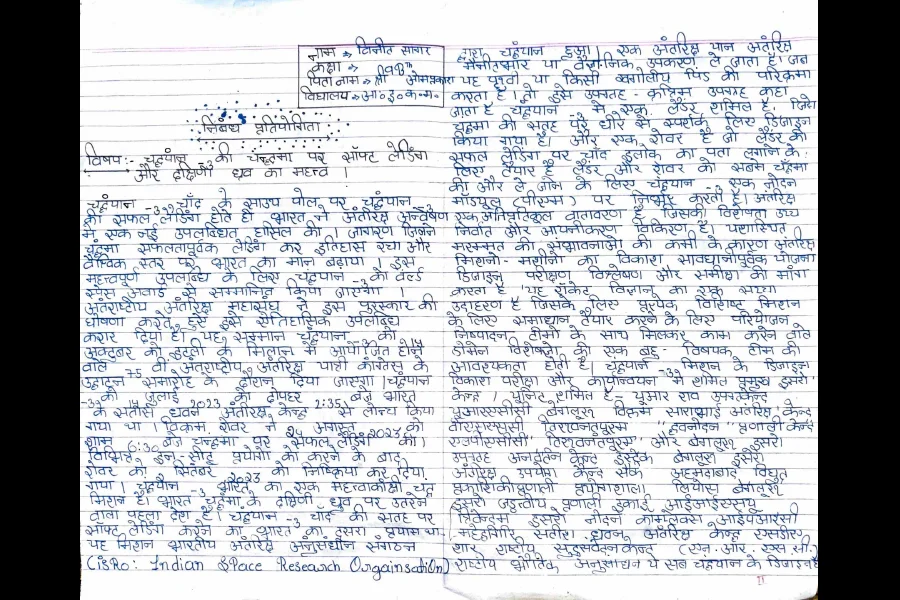 नाम → विनीत सागर
कक्षा →
पिता नाम → श्री ओमप्रकाश
विद्यालय → आ॰इ॰क॰म॰
निबंध प्रतियोगिता
विषय :- चंद्रयान -3 की चन्द्रमा पर सॉफ्ट लैंडिंग
और दक्षिणी ध्रुव का महत्व ।
चंद्रयान -3 चाँद के साउथ पोल पर चंद्रयान -3
की सफल लैंडिंग होते ही भारत ने अंतरिक्ष अन्वेषण
में एक नई उपलब्धि हासिल की ।
चंद्रमा सफलतापूर्वक लैंडिंग कर इतिहास रचा और
वैश्विक स्तर पर भारत का मान बढ़ाया । इस
महत्वपूर्ण उपलब्धि के लिए चंद्रयान -3 को वर्ल्ड
स्पेस अवार्ड से सम्मानित किया जाएगा ।
अंतराष्ट्रीय अंतरिक्ष महासंघ ने इस पुरस्कार की
घोषणा करते हुए इसे ऐतिहासिक उपलब्धि
करार दिया है। यह सम्मान चंद्रयान -3 को 14
अक्टूबर को इटली के मिलान में आयोजित होने
वाले 75 वी अंतराष्ट्रीय अंतरिक्ष यात्री कांग्रेस के
उद्घाटन समारोह के दौरान दिया जाएगा। चंद्रयान
-3 को 14 जुलाई 2023 को दोपहर 2:35 बजे भारत
के सतीश धवन अंतरिक्ष केन्द्र से लॉन्च किया
गया था । विक्रम, रोवर ने 24 अगस्त 2023 को
शाम 6:30 बजे चन्द्रमा पर सफल लैंडिंग की।
विभिन्न इन-सीटू प्रयोगों को करने के बाद,
रोवर को सितंबर 2023 को निष्क्रिय कर दिया
गया । चंद्रयान -3 भारत का एक महत्वाकांक्षी चंद्र
मिशन है। भारत चंद्रमा के दक्षिणी ध्रुव पर उतरने
वाला पहला देश है। चंद्रयान -3 चाँद की सतह पर
सॉफ्ट लैंडिंग करने का भारत का दूसरा प्रयास था.
यह मिशन भारतीय अंतरिक्ष अनुसंधान संगठन
(ISRO: Indian Space Research Orgainsation)
द्वारा चंद्रयान हुआ। एक अंतरिक्ष यान अंतरिक्ष
में या वैज्ञानिक उपकरण ले जाता है। जब
यह पृथ्वी या किसी खगोलीय पिंड की परिक्रमा
करता है। तो इसे उपग्रह - कृत्रिम उपग्रह कहा
जाता है चंद्रयान -3 में एक लैंडर शामिल है, जिसे
चंद्रमा की सतह पर धीरे से स्पर्शक लिए डिजाइन
किया गया है। और एक रोवर है जो लैंडर की
सफल लैंडिंग पर चाँद इलाके का पता लगाने के
लिए तैयार है लैंडर और रोवर को सबमे चंद्रमा
की ओर ले जाने के लिए चंद्रयान -3 एक नोदन
माड्यूल (पीएम) पर निर्भर करता है। अंतरिक्ष
एक अतिप्रतिकूल वातावरण है जिसकी विशेषता उच्च
निर्वात और आयनीकरण विकिरण है।
मरम्मत की सम्भावनाओं की कमी के कारण अंतरिक्ष
मिशनो - मशीनो का विकास सावधानीपूर्वक योजना
डिजाइन परीक्षण विश्लेषण और समीक्षा की मांग
करता है । यह रॉकेट विज्ञान का एक सच्चा
उदाहरण है जिसके लिए प्रत्येक विशिष्ट मिशन
के लिए समाधान तैयार करने के लिए परियोजन
निष्पादन टीमो के साथ मिलकर काम करने वाले
डोमेन विशेषज्ञों की एक बहु - विषयक टीम की
आवश्यकता होती है। चंद्रयान -3 मिशन के डिजाइन
विकास परीक्षा और कार्यान्वयन में शामिल प्रमुख इसरो
केन्द्र । यूनिट शामिल है - यूआर राव उपग्रकेन्द्र
यूआरएससी बेंगलूरू विक्रम साराभाई अंतरिक्ष केन्द्र
वीएसएससी तिरूवनंतपुरम द्रवनोदन प्रणाली केन्द्र
एलपीएससी तिरूवनंतपुरम और बेंगलूरू इसरो
उपग्रह केन्द्र इस्ट्रेक बेंगलूरू इसरो
अंतरिक्ष उपयोग केन्द्र सैक अहमदाबाद विद्युत
प्रकाशिकी प्रणाली प्रयोगशाला लियोस बेंगलूरू
इसरो जड़त्वीय प्रणाली इकाई आईआईएसयू
त्रिवेन्द्रम इसरो नोदन काम्प्लेक्स आईपीआरसी
महेंद्रगिरि सतीश धवन अंतरिक्ष केन्द्र एसडीएस
शार राष्ट्रीय सुदूर संवेदन केन्द्र (एन. आर. एस. सी.)
राष्ट्रीय भौतिक अनुसंधान ये सब चंद्रयान के डिजाइन